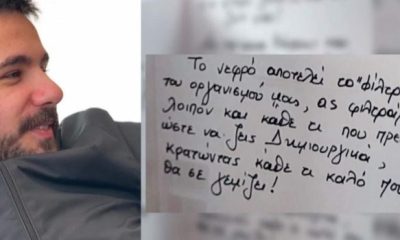 Το νεφρό αποτελεί το "φίλτρο
του οργανισμού μας, ας φιλτράρ
λοιπόν και κάθε τι που πρέ
ώστε να ζεις Δημιουργικά,
κρατώντας κάθε τι καλό που
θα σε γεμίζει!